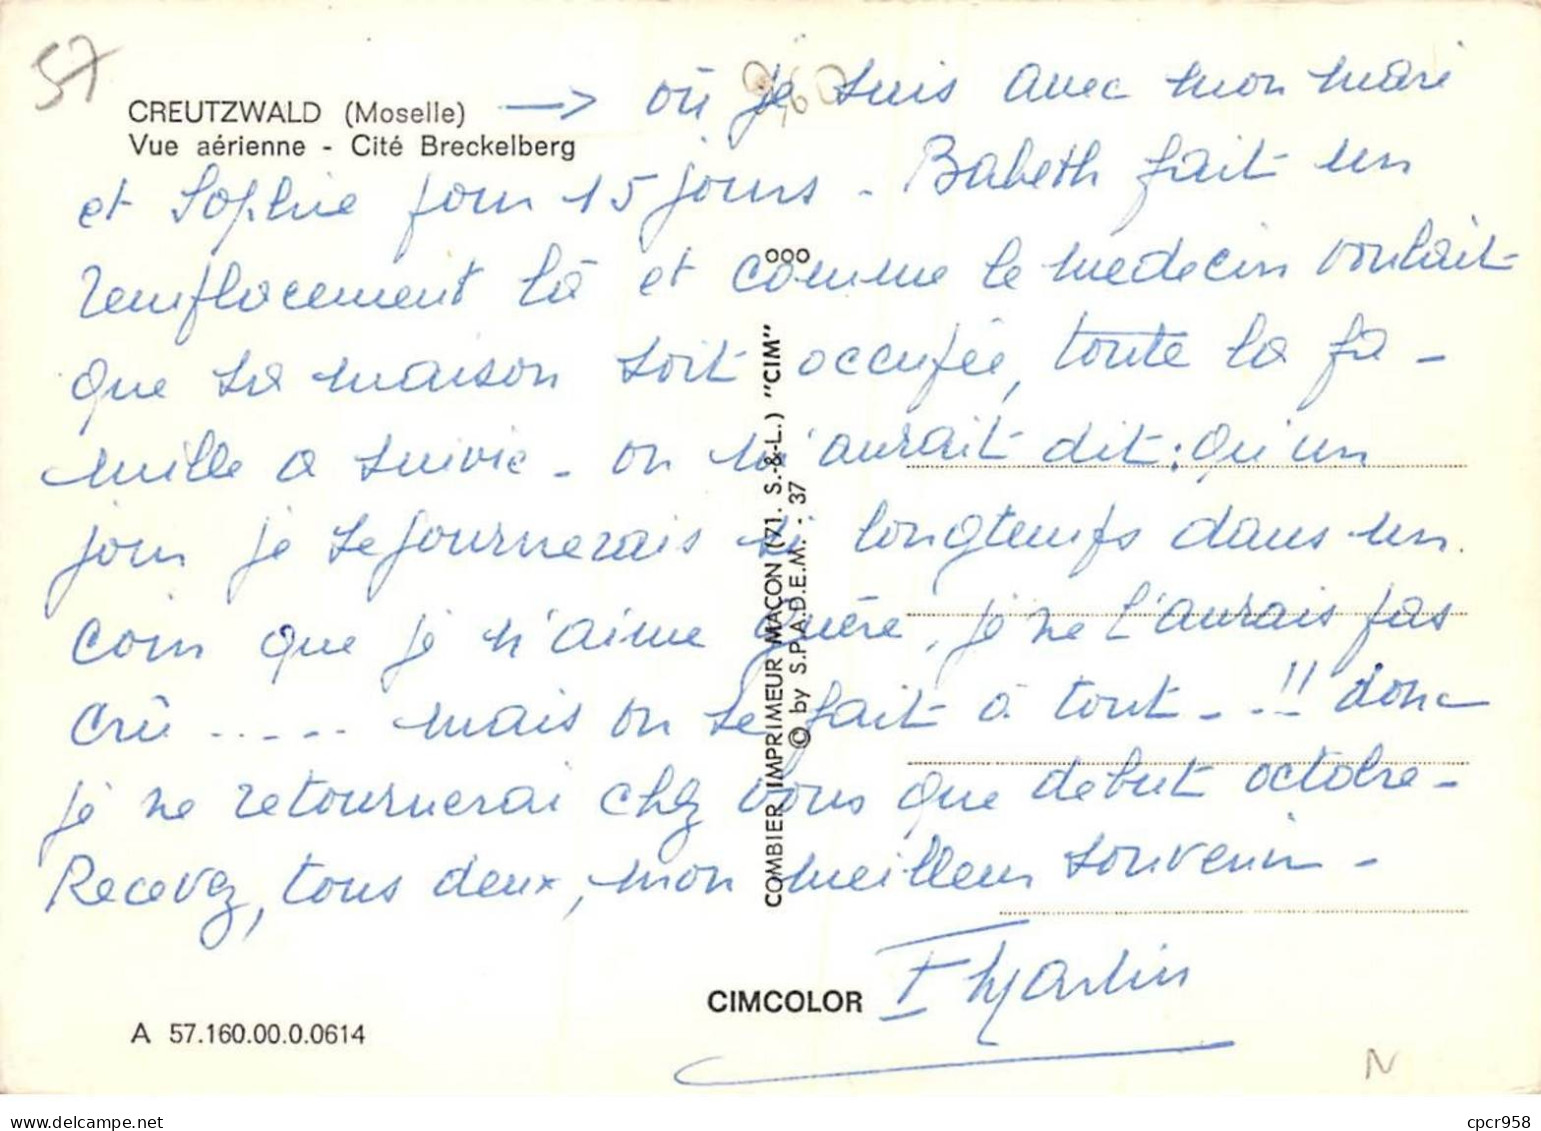 57
CREUTZWALD (Moselle) → où je suis avec mon mari
960
Vue aérienne - Cité Breckelberg
et Sophie pour 15 jours - Babeth fait un
remplacement là et comme le médecin voulait
que sa maison soit occupée, toute la fa-
mille a suivie - on m'aurait dit : qu'un
jour je séjournerais si longtemps dans un
coin que je n'aime guère, je ne l'aurais pas
crû ..... mais on se fait à tout - .!! donc
je ne retournerai chez vous que début octobre -
Recevez, tous deux, mon meilleur souvenir -
F Martin
COMBIER IMPRIMEUR MACON (71. S.-&-L.) "CIM"
© by S.P.A.D.E.M. - 37
CIMCOLOR
A 57.160.00.0.0614
N
cpcr958